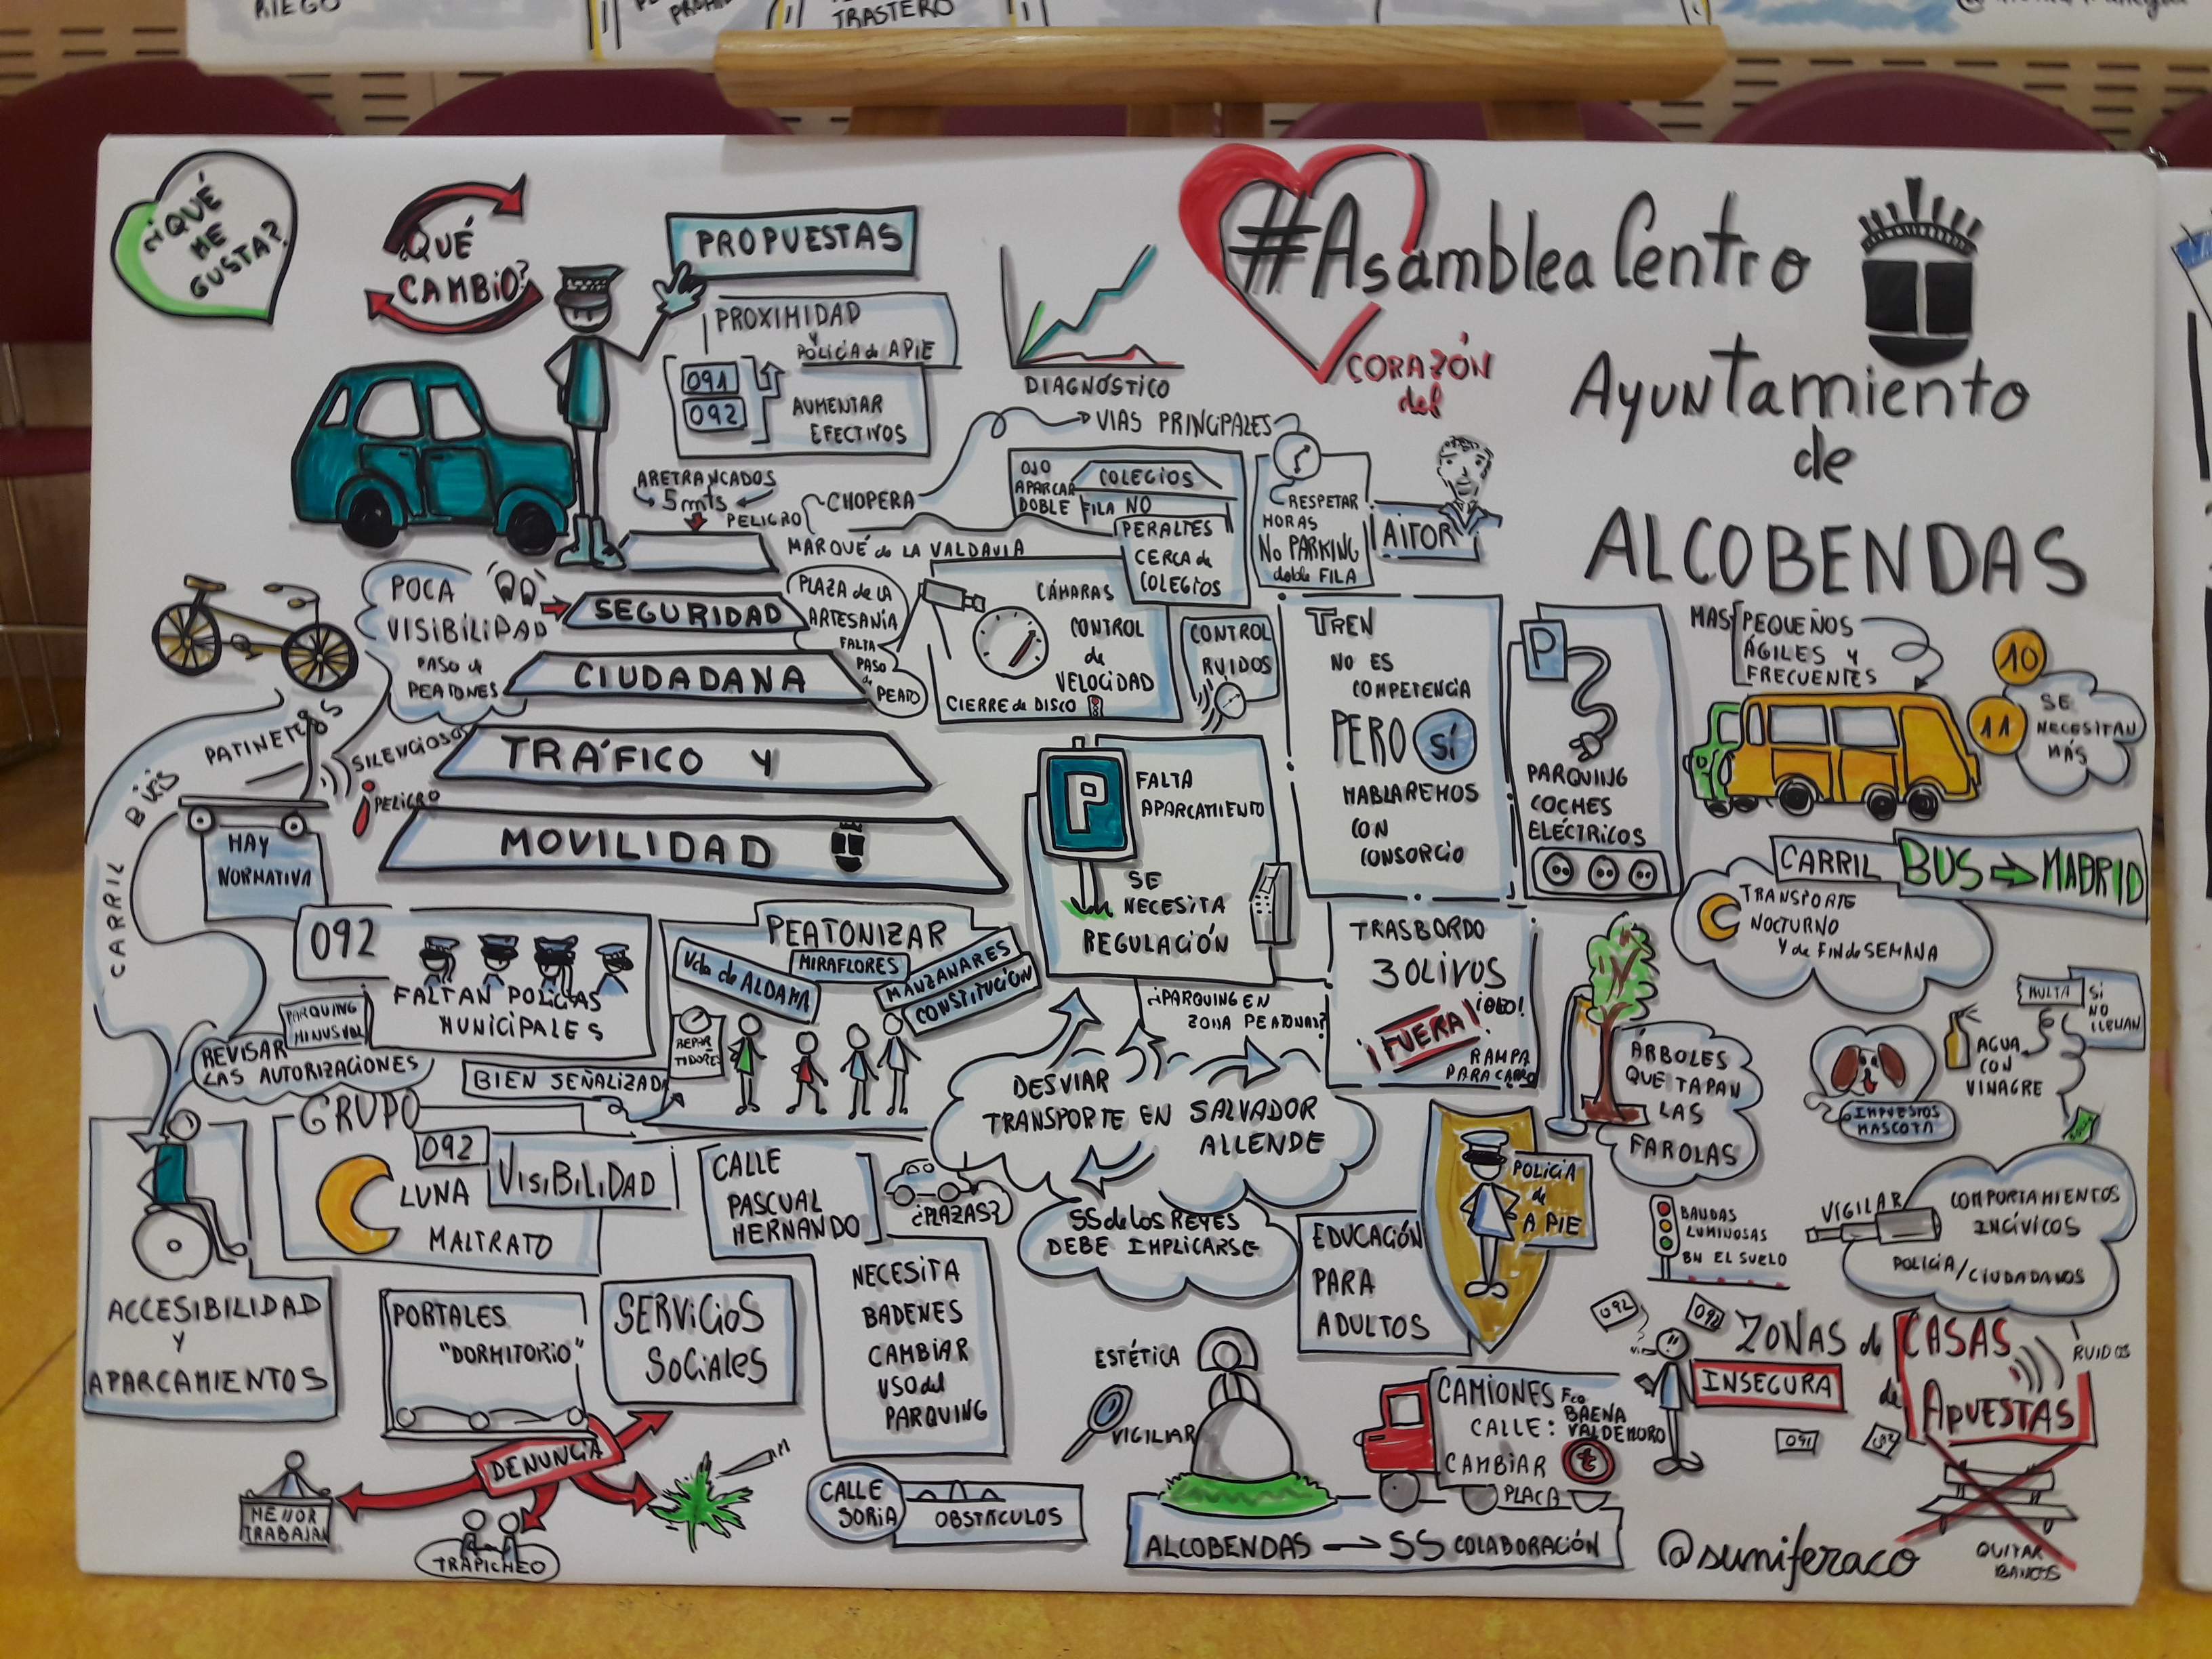 RIEGO
TRASTERO
¿QUÉ
ME
GUSTA?
¿QUÉ
CAMBIO?
PROPUESTAS
PROXIMIDAD
Y
POLICÍA de A PIE
091
092
AUMENTAR
EFECTIVOS
DIAGNÓSTICO
#Asamblea Centro
CORAZÓN
del
Ayuntamiento
de
ALCOBENDAS
ARETRANCADOS
5 mts
PELIGRO
CHOPERA
VIAS PRINCIPALES
MARQUÉ de LA VALDAVIA
OJO
APARCAR
DOBLE FILA NO
COLEGIOS
PERALTES
CERCA de
COLEGIOS
RESPETAR
HORAS
No PARKING
doble FILA
AITOR
POCA
VISIBILIDAD
PASO de
PEATONES
SEGURIDAD
CIUDADANA
TRÁFICO Y
MOVILIDAD
PLAZA de LA
ARTESANÍA
FALTA
PASO
de
PEATO
CÁMARAS
CONTROL
de
VELOCIDAD
CIERRE de DISCO
CONTROL
RUIDOS
TREN
NO ES
COMPETENCIA
PERO SÍ
HABLAREMOS
CON
CONSORCIO
P
PARQUING
COCHES
ELÉCTRICOS
MAS PEQUEÑOS
ÁGILES Y
FRECUENTES
10
11
SE
NECESITAN
MÁS
CARRIL BUS → MADRID
TRANSPORTE
NOCTURNO
Y de FIN de SEMANA
CARRIL BUS
PATINETES
SILENCIOSOS
¡PELIGRO
HAY
NORMATIVA
092
FALTAN POLICÍAS
MUNICIPALES
PARQUING
MINUSVAL
REVISAR
LAS AUTORIZACIONES
PEATONIZAR
Vcla de ALDAMA
MIRAFLORES
MANZANARES
CONSTITUCIÓN
REPAR
TIDORES
BIEN SEÑALIZADA
P
FALTA
APARCAMIENTO
SE
NECESITA
REGULACIÓN
¿PARQUING EN
ZONA PEATONAL?
TRASBORDO
3 OLIVOS
¡FUERA!
¡OJO!
RAMPA
PARA CARRO
ÁRBOLES
QUE TAPAN
LAS
FAROLAS
IMPUESTOS
MASCOTA
AGUA
CON
VINAGRE
MULTA SI
NO
LLEVAN
DESVIAR
TRANSPORTE EN SALVADOR
ALLENDE
SS de LOS REYES
DEBE IMPLICARSE
GRUPO
092
LUNA
MALTRATO
VISIBILIDAD
CALLE
PASCUAL
HERNANDO
¿PLAZAS?
NECESITA
BADENES
CAMBIAR
USO del
PARQUING
ACCESIBILIDAD
Y
APARCAMIENTOS
PORTALES
"DORMITORIO"
SERVICIOS
SOCIALES
DENUNCIA
MENOR
TRABAJAN
TRAPICHEO
CALLE
SORIA
OBSTÁCULOS
EDUCACIÓN
PARA
ADULTOS
POLICÍA
de
A PIE
BANDAS
LUMINOSAS
EN EL SUELO
VIGILAR
COMPORTAMIENTOS
INCÍVICOS
POLICIA/CIUDADANOS
ESTÉTICA
VIGILIAR
CAMIONES
CALLE: Fco
BAENA
VALDEMORO
CAMBIAR
PLACA
ALCOBENDAS → SS COLABORACIÓN
092
092
091
ZONAS de CASAS
de APUESTAS
INSEGURA
RUIDOS
QUITAR
BANCOS
@suniferaco